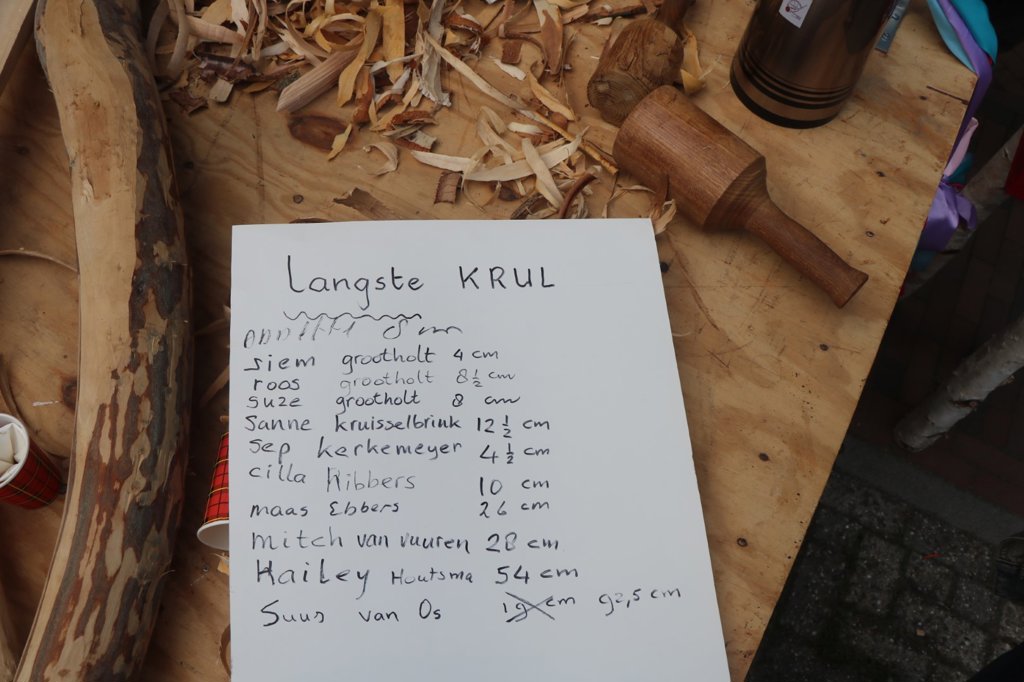 Langste KRUL
8 cm
siem grootholt 4 cm
roos grootholt 8 1/2 cm
suze grootholt 8 cm
Sanne kruisselbrink 12 1/2 cm
Sep kerkemeyer 4 1/2 cm
cilla Ribbers 10 cm
maas Ebbers 26 cm
mitch van vuuren 28 cm
Hailey Houtsma 54 cm
Suus van Os 19 cm 92,5 cm